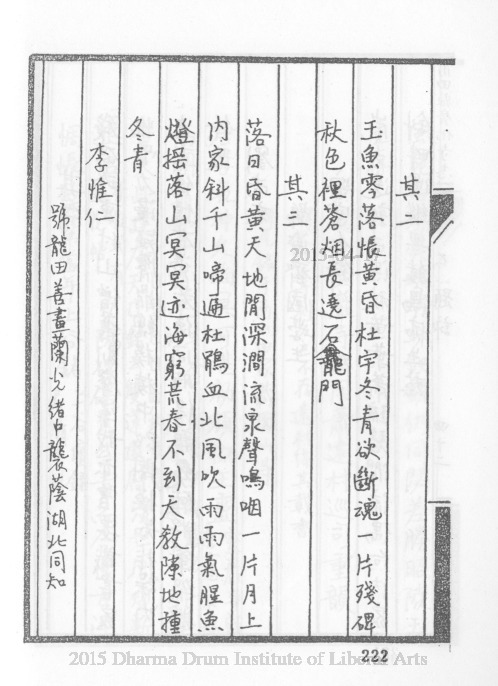 其二
玉魚零落悵黃昏杜宇冬青欲斷魂一片殘碑
秋色裡蒼烟長遶石龕門
其三
落日昏黃天地閒深澗流泉聲鳴咽一片月上
內家斜千山啼遍杜鵑血北風吹雨雨氣腥魚
燈搖落山冥冥迹海窮荒春不到天教隙地種
冬青
李惟仁
號龍田善畫蘭光緒中襲蔭湖北同知
222
2015-04-
2015 Dharma Drum Institute of Liberal Arts